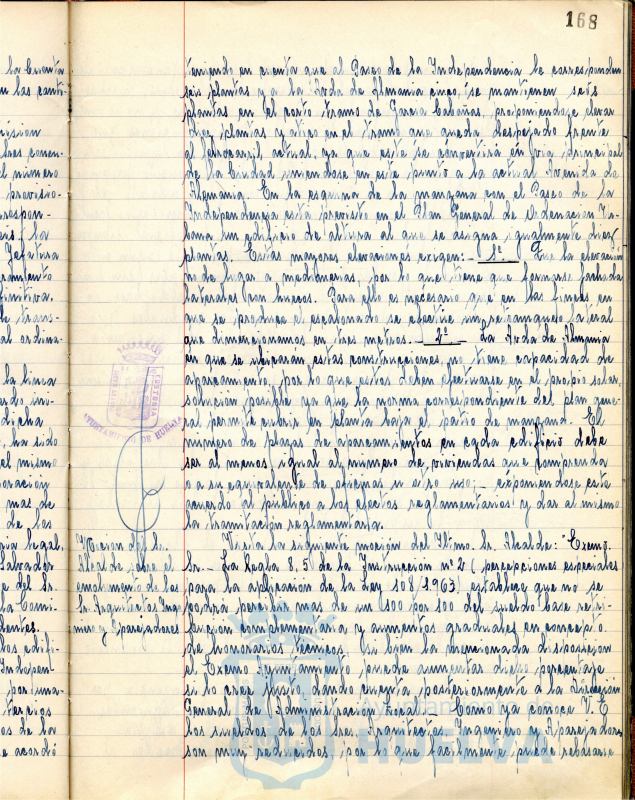 168
teniendo en cuenta que al Paseo de la Independencia le corresponden
seis plantas y a la Avda de Alemania cinco, se mantienen seis
plantas en el corto tramo de Garcia Cabañas, proponiendose elevar
diez plantas y atico en el tramo que queda despejado frente
al ferrocarril, actual, ya que este se convertirá en via principal
de la Ciudad uniendose en este punto a la actual Avenida de
Alemania. En la esquina de la manzana con el Paseo de la
Independencia está previsto en el Plan General de Ordenación Ur-
bana un edificio de altura al que se asigna igualmente diez
plantas. Estas mayores elevaciones exigen: - 1º Que la elevacion
no de lugar a medianerias, por lo que tiene que formarse fachada
laterales con huecos. Para ello es necesario que en las lineas en
que se produce el escalonado se efectue un retranqueo lateral
que dimensionamos en tres metros. - 2º La Avda de Alemania
en que se ubicaran estas construcciones, no tiene capacidad de
aparcamiento, por lo que estos deben efectuarse en el propio solar,
solución posible ya que la norma correspondiente del plan gene-
ral permite cubrir en planta baja el patio de manzana. El
número de plazas de aparcamientos en cada edificio debe
ser al menos igual al número de viviendas que comprenda
o a su equivalente de oficinas u otro uso; - exponiendose este
acuerdo al público a los efectos reglamentarios y dar al mismo
la tramitación reglamentaria.
AYUNTAMIENTO DE HUELVA
Mocion del Sr.
Alcalde sobre el
emolumento de los
Sr. Arquitectos Inge
nieros y Aparejadores
Vista la siguiente moción del Iltmo. Sr. Alcalde: Excmo.
Sr. - La Regla 8.5 de la Instrucción nº 2 (percepciones especiales
para la aplicación de la Ley 108/1963) establece que no se
podra percibir mas de un 500 por 100 del sueldo base retri-
bución complementaria y aumentos graduales en concepto
de honorarios tecnicos. Si bien la mencionada disposicion
el Excmo Ayuntamiento puede aumentar dicho porcentaje
si lo cree justo, dando cuenta posteriormente a la Dirección
General de Administración Local. Como ya conoce V. E
los sueldos de los Sres Arquitectos, Ingeniero y Aparejadores
son muy reducidos, por lo que facilmente puede rebasarse
la Cuenta
n las canti-
tres concen-
el número
provisio-
Jefatura
al ordina-
la linea
dicha
ha sido
el mismo
mas de
de los
legal,
Salvador
del Sr.
la Comi-
los edifi-
Indepen-
por una
tercios
os de la
e acordó
Ayuntamiento
HUELVA